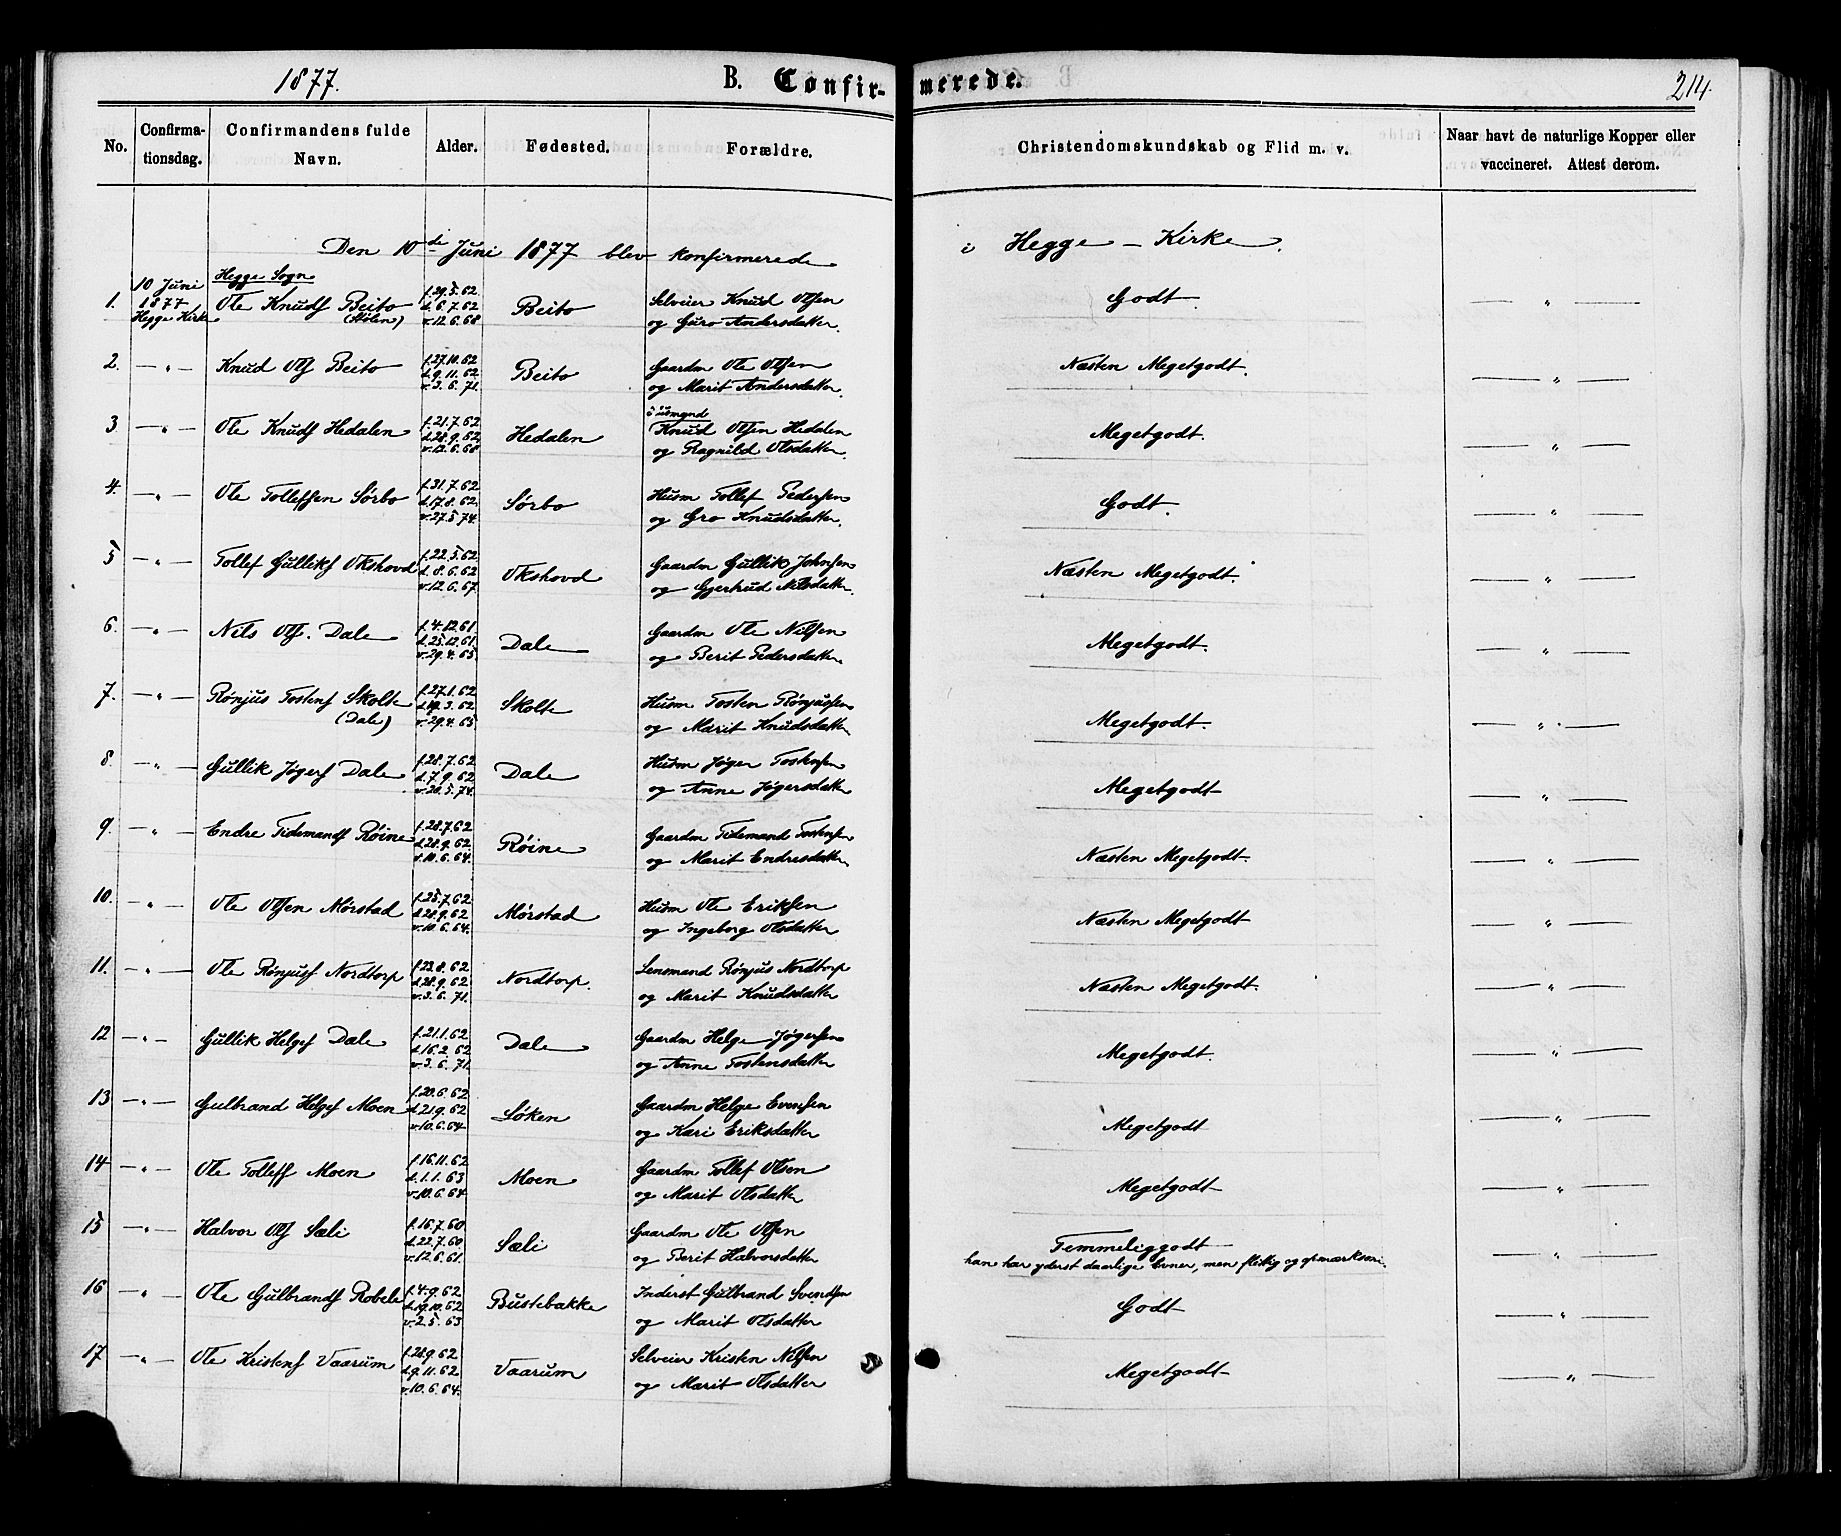 1877. B. Confirmerede. 214.
No. Confirmationsdag. Confirmandens fulde Navn. Alder. Fødested. Forældre. Christendomskundskab og Flid m. v. Naar havt de naturlige Kopper eller vaccineret. Attest derom.
Den 10de Juni 1877 blev konfirmerede i Hegge-Kirke.
Hegge Sogn
1. 10 Juni 1877 Hegge Kirke Ole Knuds Beito (Stølen) f.29.5.62 d.6.7.62 v.12.6.68 Beito Selveier Knud Olsen og Guro Andersdatter. Godt. — " —
2. — " — Knud Ols Beito f.27.10.62 d.9.11.62 v.3.6.71. Beito Gaardm Ole Olsen og Marit Andersdatter. Næsten Megetgodt. — " —
3 — " — Ole Knuds Hedalen f.21.7.62 d.28.9.62 v.12.6.68 Hedalen Knud Olsen Hedalen og Ragnild Olsdatter. Megetgodt. — " —
4. — " — Ole Tollefsen Sørbo f.31.7.62 d.17.8.62 v.27.5.74. Sørbo Husm Tollef Pedersen og Gro Knudsdatter. Godt. — " —
5 — " — Tollef Gulliks Okshovd f.22.5.62 d.8.6.62 v.12.6.67. Okshovd Gaardm Gullik Johnsen og Gjertrud Nilsdatter. Næsten Megetgodt. — " —
6. — " — Nils Ols. Dale f.4.12.61 d.25.12.61. v.29.4.65 Dale Gaardm Ole Nilsen og Berit Pedersdatter. Megetgodt. — " —
7. — " — Rønjus Tostens Skolte (Dale) f.27.1.62 d.19.3.62 v.29.4.65 Skolte Husm Tosten Rønjussen og Marit Knudsdatter Megetgodt. — " —
8. — " — Gullik Jøgers Dale f.28.7.62 d.7.9.62 v.20.5.74. Dale Husm Jøger Tostensen og Anne Jøgersdatter Megetgodt — " —
9. — " — Endre Tidemands Røine f.28.7.62 d.28.9.62 v.10.6.64. Røine Gaardm Tidemand Tostensen og Marit Endresdatter Næsten Megetgodt. — " —
10. — " — Ole Olsen Mørstad f.25.7.62 d.28.9.62 v.10.6.64. Mørstad Husm Ole Eriksen og Ingeborg Olsdatter Næsten Megetgodt — " —
11. — " — Ole Rønjuss Nordtorp f.23.8.62 d.28.9.62 v.3.6.71. Nordtorp. Lensmand Rønjus Nordtorp og Marit Knudsdatter Næsten Megetgodt. — " —
12 — " — Gullik Helges Dale f.21.1.62 d.16.2.62 v.3.6.71. Dale Gaardm Helge Jøgersen og Anne Tostensdatter Megetgodt. — " —
13 — " — Gulbrand Helges Moen f.20.6.62 d.21.9.62 v.10.6.64 Løken Gaardm Helge Evensen og Kari Eriksdatter Megetgodt — " —
14 — " — Ole Tollefs Moen f.16.11.62 d.1.1.63 v.10.6.64 Moen Gaardm Tollef Olsen og Marit Olsdatter Megetgodt — " —
15 — " — Halvor Ols Sæli f.16.7.60 d.22.7.60 v.12.6.61. Sæli Gaardm Ole Olsen og Berit Halvorsdatter Temmeliggodt
han har yderst daarlige Evner, men flittig og opmærksom. — " —
16 — " — Ole Gulbrands Robele f.4.9.62 d.19.10.62 v.2.5.63 Bustebakke Inderst Gulbrand Svendsen og Marit Olsdatter Godt — " —
17 — " — Ole Kristens Vaarum f.28.9.62 d.9.11.62 v.10.6.64. Vaarum Selveier Kristen Nilsen og Marit Olsdatter Megetgodt — " —